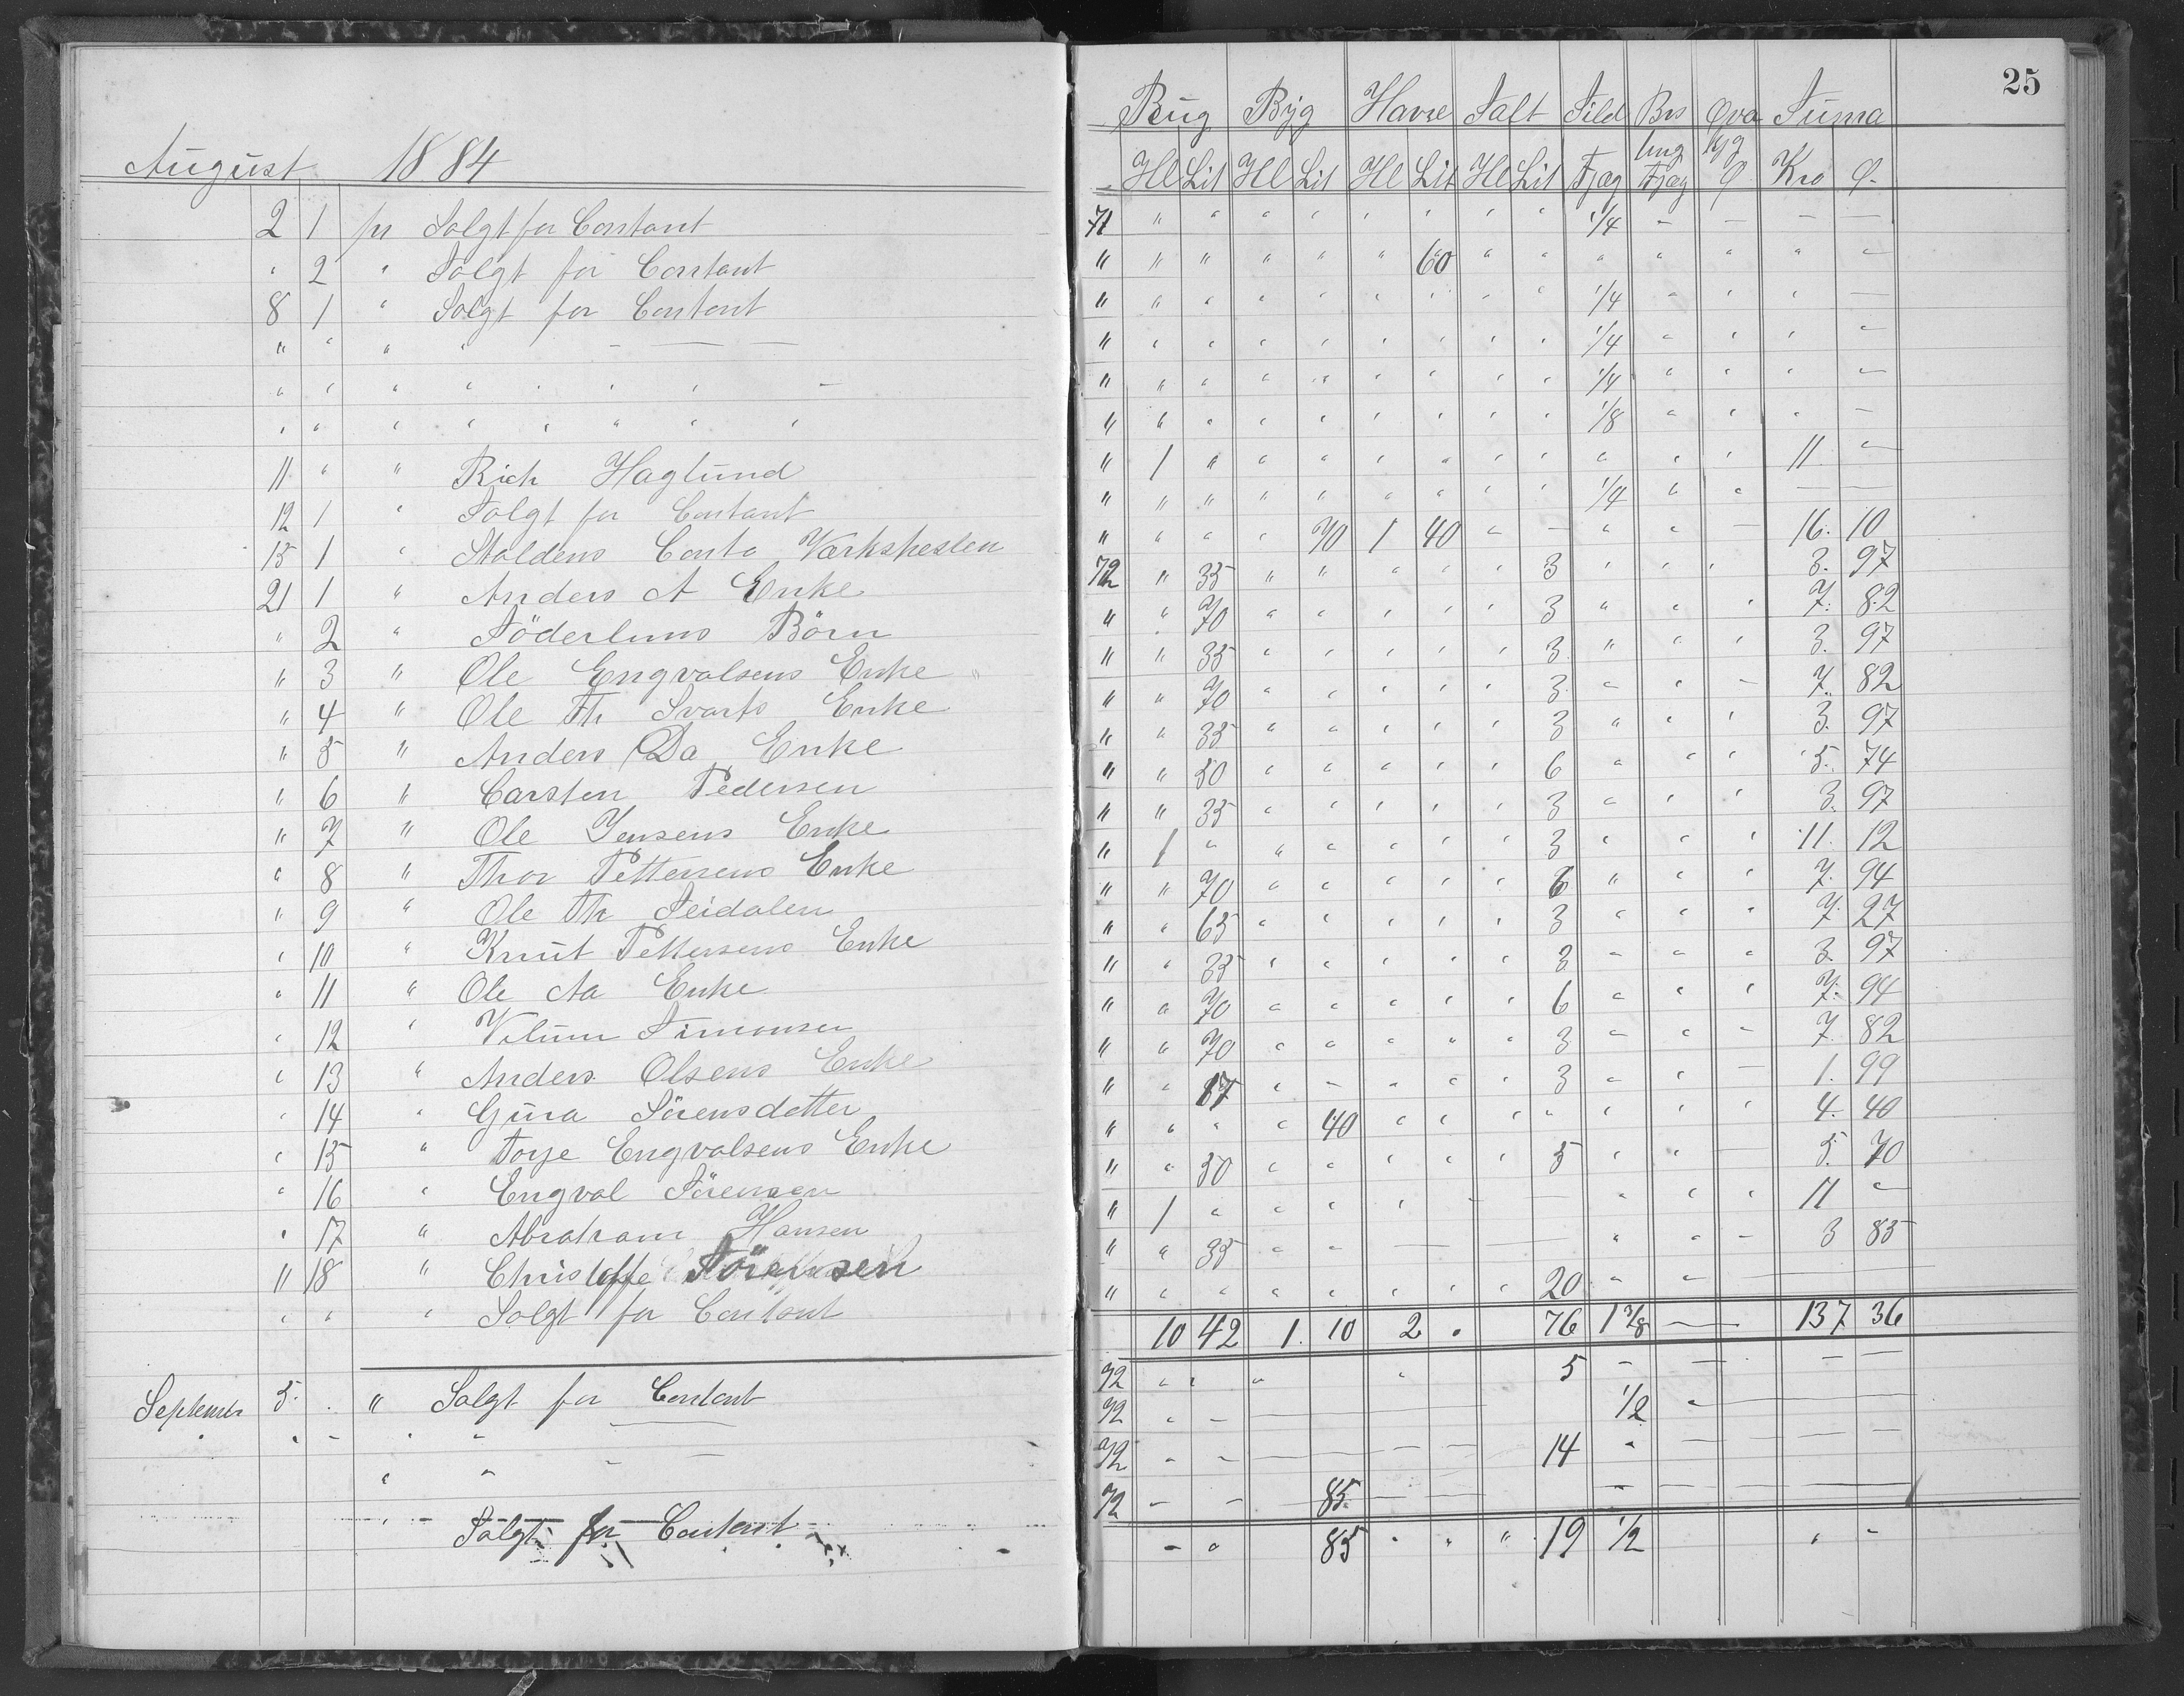 25
August 1884
Rug Byg Havre Salt Sild Brs Qva Suma
ling kg
Hl Lit Hl Lit Hl Lit Hl Lit Fjæg Fjæg Q Kro Ø.
2 1 pr Solgt for Contant 71 " " " " " " " " 1/4 — — — —
" 2 " Solgt for Contant " " " " " " 60 " " " " " " "
8 1 " Solgt for Contant " " " " " " " " " 1/4 " " " —
" " " " — — — " " " " " " " " " 1/4 " " " "
" " " " " " " — " " " " " " " " " 1/4 " " " "
" " " " " " " " " " " " " " " " " 1/8 " " " —
11 " " Rich Haglund " 1 " " " " " " " " " " 11 "
12 1 " Solgt for Contant " " " " " " " " " 1/4 " " — —
15 1 " Staldens Conto Værkshesten " " " " 70 1 40 " — " " — 16. 10
21 1 " Anders A Enke 72 " 35 " " " " " 3 " " " 3. 97
" 2 " Söderluns Börn " " 70 " " " " " 3 " " " 7. 82
" 3 " Ole Engvalsens Enke " " 35 " " " " " 3 " " " 3. 97
" 4 " Ole Th Svarts Enke " " 70 " " " " " 3 " " — 7. 82
" 5 " Anders Da Enke " " 35 " " " " " 3 " " " 3. 97
" 6 " Carsten Pedersen " " 50 " " " " " 6 " " " 5. 74
" 7 " Ole Jensens Enke " " 35 " " " " " 3 " " " 3. 97
" 8 " Thor Pettersens Enke " 1 " " " " " " 3 " " " 11. 12
" 9 " Ole Th Seidalen " " 70 " " " " " 6 " " " 7. 94
" 10 " Knut Pettersens Enke " " 65 " " " " " 3 " " " 7. 27
" 11 " Ole Aa Enke " " 35 " " " " " 3 " " " 3. 97
" 12 " Vilum Simonsen " " 70 " " " " " 6 " " " 7. 94
" 13 " Anders Olsens Enke " " 70 " " " " " 3 " " — 7. 82
" 14 " Gura Sörensdetter " " 17 " — " " " 3 " " — 1. 99
" 15 " Torje Engvalsens Enke " " " " 40 " " " " " " " 4. 40
" 16 " Engval Sörensen " " 50 " " " " " 5 " " — 5. 70
" 17 " Abraham Hansen " 1 " " " " — — " " " 11 "
" 18 " Christoffe Sörensen " " 35 " " — — — " " — 3 85
" " " Solgt for Contant " " " " " " " " 20 " " —
10 42 1. 10 2 " 76 1 3/8 — 137 36
September 5. . " Solgt for Contant 72 " " " " 5 — — — —
" " — " " — 72 " — — 1/2 " —
" " — — 72 " — — — — 14 " — — — —
" — Solgt for Contant 72 — — 85. — — — — —
— " 85 " " " 19 1/2 " "